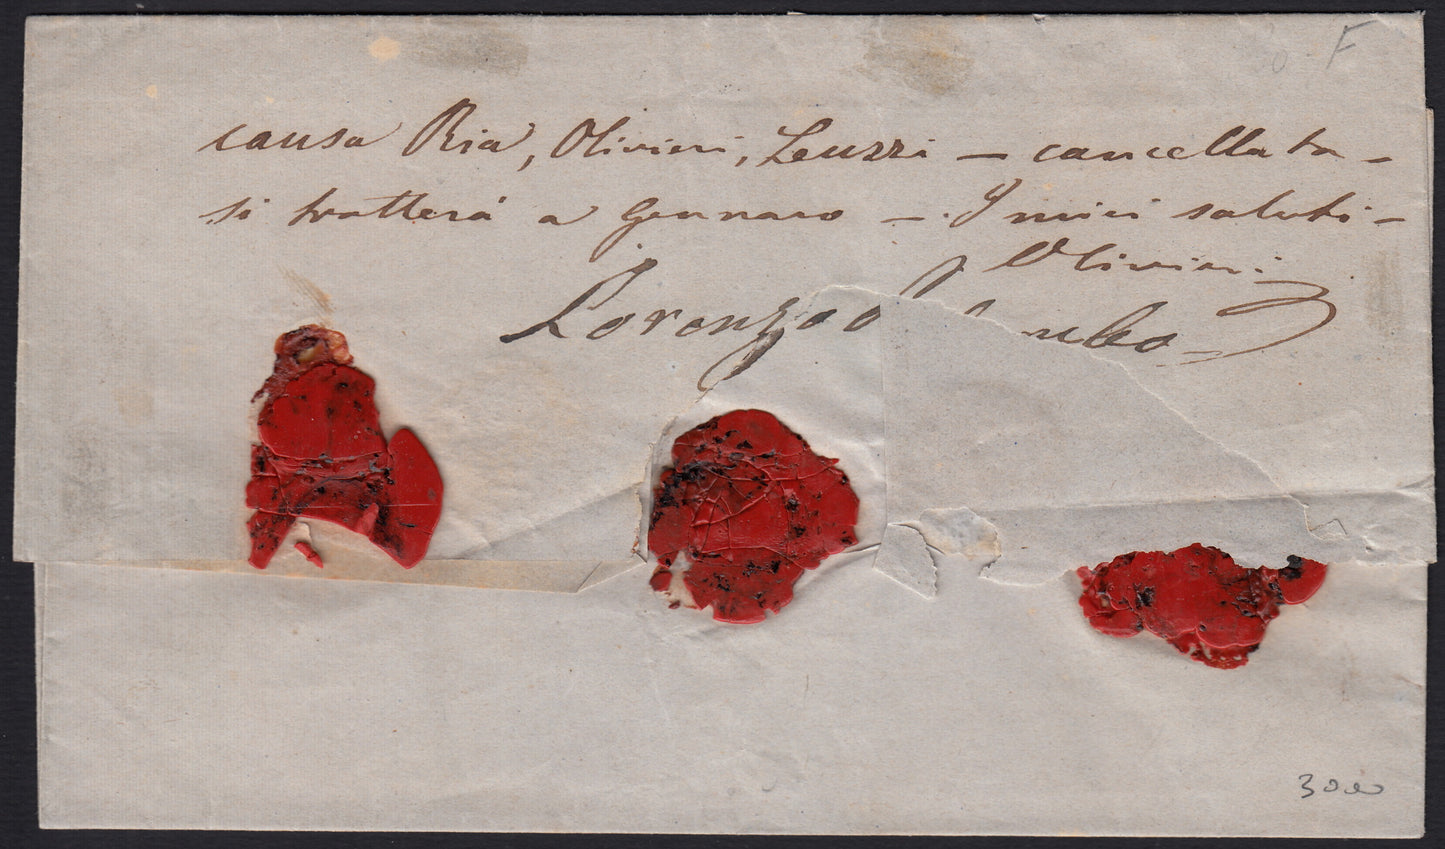 F
causa Ria, Olivieri, Leuzzi — cancellata —
si tratterà a Gennaro —. I miei saluti —
Olivieri
Lorenzo